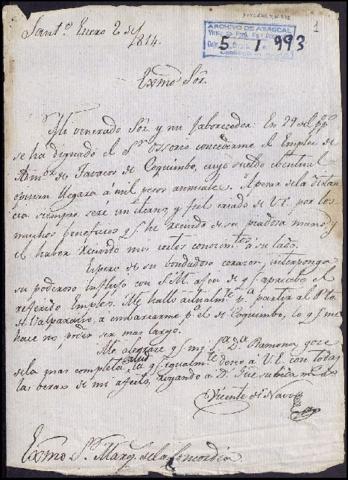 1
Sant.º Enero 2 de
1814.
ARCHIVO DE ABASCAL
5 1 993
Exmo Sór.
Mi venerado Sór y mi faborecedor: En 29 del pp.
se ha dignado el S.r Ossorio concederme el Empleo de
Admor. de Tavacos de Coquimbo, cuyo sueldo eventual
llegara à mil pesos anuales. A pesar de la distan
cia siempre seré un tierno y fiel criado de V.E. por los
muchos beneficios q.e he recivido de su piadosa mano y
el haber recivido mis cortos a su lado.
Espero de su bondadoso corazon, interponga
su poderoso influjo con S.M. afin de q.e apruebe el
referido Empleo. Me hallo actualm.te p.a partir al P.to
de Valparaiso, à embarcarme p.a el de Coquimbo, lo q.e me
hace no poder ser mas largo.
Me alegraré q.e mi S.a D.a Ramona goze
de la mas completa salud, la q.e igualm.te deseo a V.E. con todas
las beras de mi afecto, rogando a D.s gue su vida m.s años
Vicente de Navo
Exmo S.r Marq.s de la Concordia